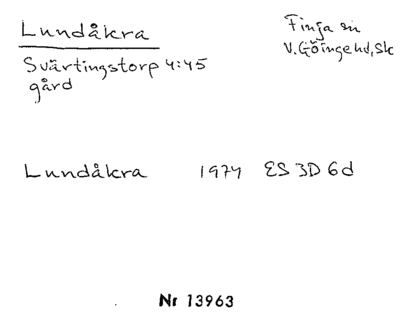 Lundåkra
Finja sn
V.Göinge hd, Sk
Svärtingstorp 4:45
gård
Lundåkra 1974 ES 3D 6d
Nr 13963